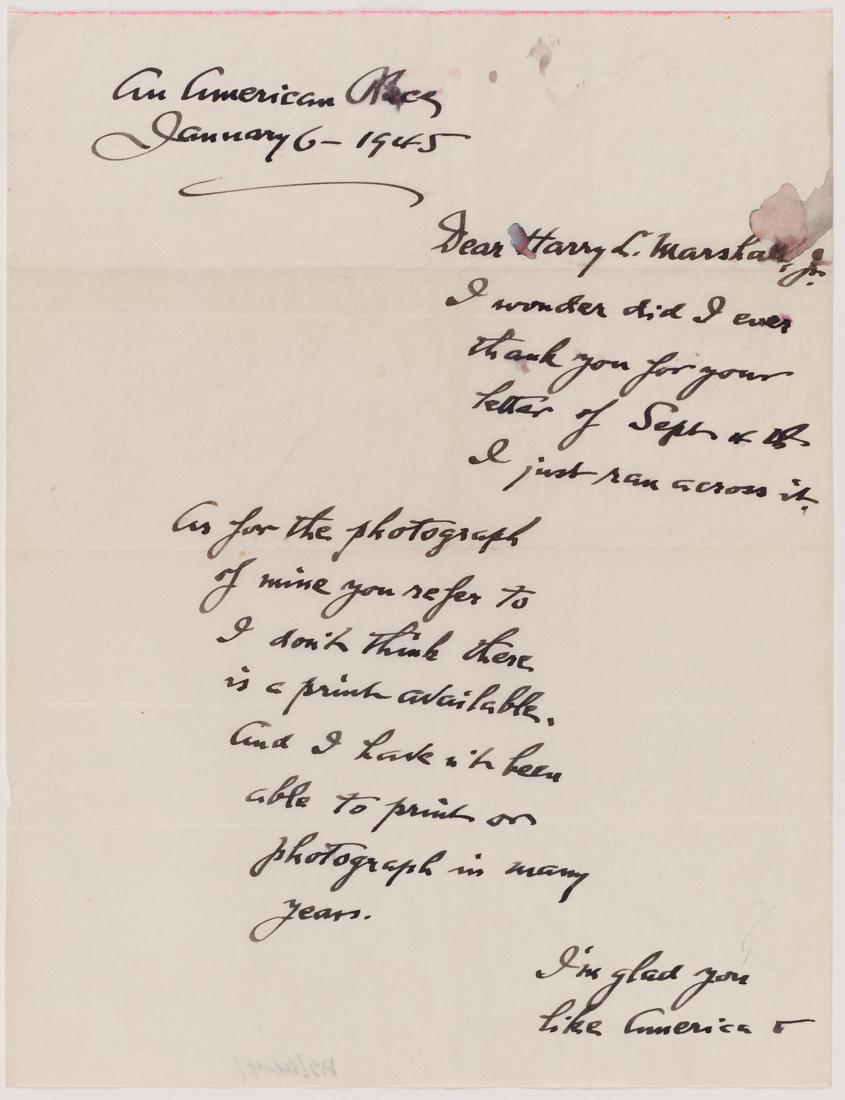 An American Place
January 6 – 1945
Dear Harry L. Marshall, Jr.
I wonder did I ever
thank you for your
letter of Sept 4 th
I just ran across it.
As for the photograph
of mine you refer to
I don't think there
is a print available.
And I have n't been
able to print or
photograph in many
years.
I'm glad you
like America &